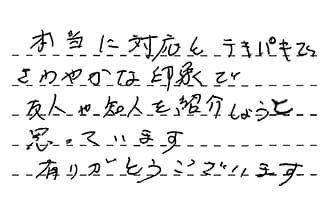 本当に対応もテキパキでと
さわやかな印象で
友人や知人を紹介しようと
思っています
有りがとうございます